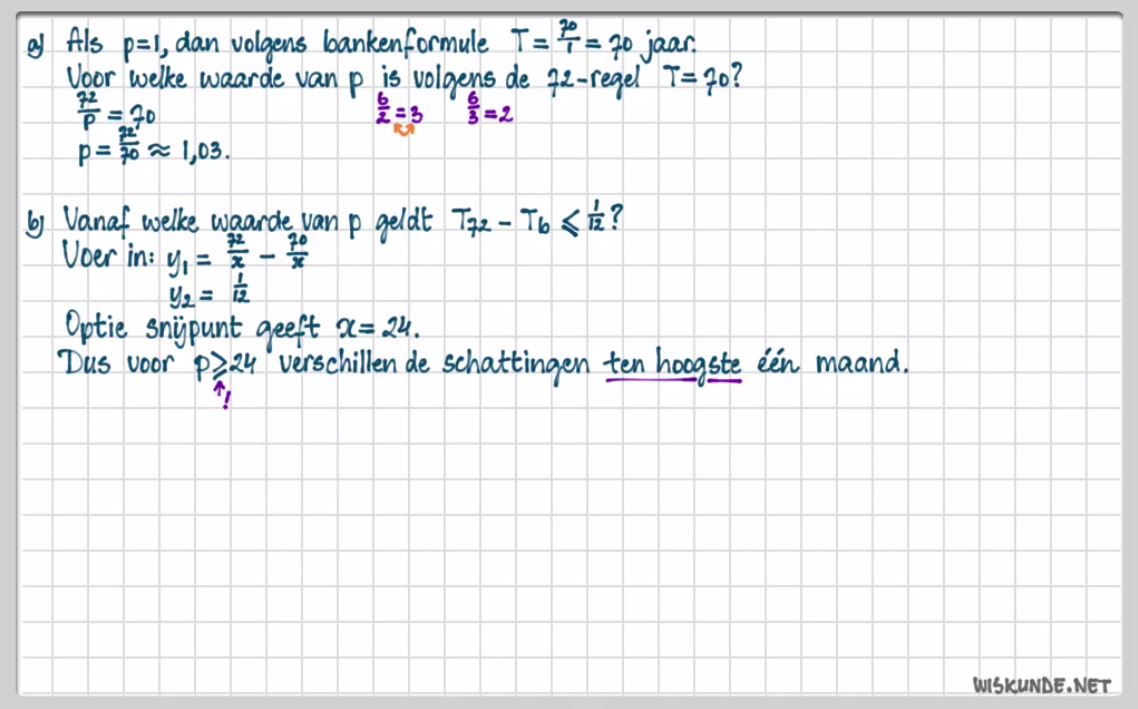 a) Als p=1, dan volgens bankenformule T = 70/1 = 70 jaar.
Voor welke waarde van p is volgens de 72-regel T=70?
72/p = 70
6/2 = 3 6/3 = 2
p = 72/70 ≈ 1,03.
b) Vanaf welke waarde van p geldt T72 - Tb ⩽ 1/12?
Voer in: y1 = 72/x - 70/x
y2 = 1/12
Optie snijpunt geeft x = 24.
Dus voor p⩾24 verschillen de schattingen ten hoogste één maand.
!
WISKUNDE.NET